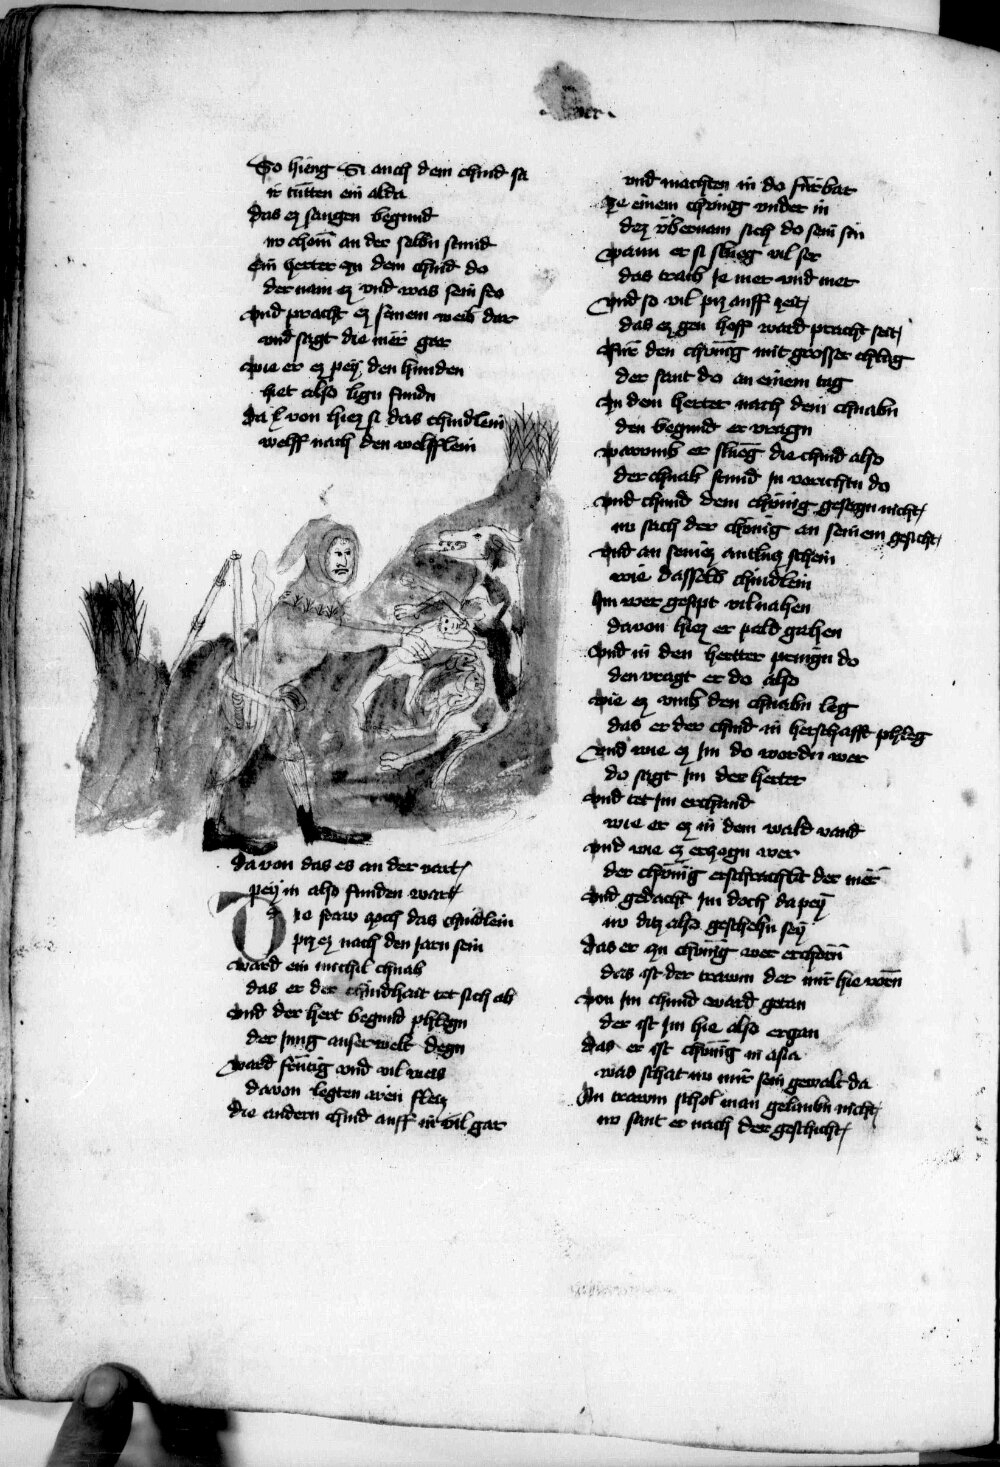 So hieng Si auch dem chind sa
ir tutten ein alda
das ez saugen begund
nv chom an der selbn stund
Ein herter zu dem chind do
der nam ez vnd was sein fro
vnd pracht ez seinem weib dar
vnd sagt die mer gar
wie er ez pey den hunden
hiet also lign fundn
da von hiez si das chindlein
welff nach den welfflein
da von das es an der vart
pey in also funden wart
Die fraw zoch das chindlein
piz ez nach den jarn sein
ward ein michel chnab
das er der chindhait tet sich ab
vnd der hert begund phlegn
der jung auserwelt degn
ward frutig vnd vil weis
davon legten iren fleiz
die andern chind auff in vil gar
vnd machten in do furbar
ze einem chonig vnder in
dez vbernam sich do sein sin
wann er si slueg vil ser
das traib je mer vnd mer
vnd so vil piz auff zeit
das ez gen hoff ward pracht seit
fur den chonig mit grosser chlag
der sant do an einem tag
zu dem herter nach dem chnabn
den begund er vragn
warumb er slueg die chind also
der chnab stund in vorichtn do
vnd chund dem chonig gesagn nicht
nv sach der chonig an seinem gesicht
vnd an seinez antlutz schein
wie dasselb chindlein
Im wer gesipt vil nahen
davon hiez er pald gahen
vnd in den hertter pringn do
den vragt er do also
wie ez vmb den chnabn leg
das er der chind in herschafft phleg
vnd wie ez im do wordn wer
do sagt im der herter
vnd tet im erchand
wie er ez in dem wald vand
vnd wie ez erzogn wer
der chonig erschrachkt der mer
vnd gedacht im doch da pey
nv ditz also geschehn sey
das er zu chonig wer erchorn
das ist der trawm der mir hie vorn
von im chund ward getan
der ist im hie also ergan
das er ist chonig in asia
was schat nv mir sein gewalt da
Im trawm schol man gelaubn nicht
nv sant er nach der geschicht